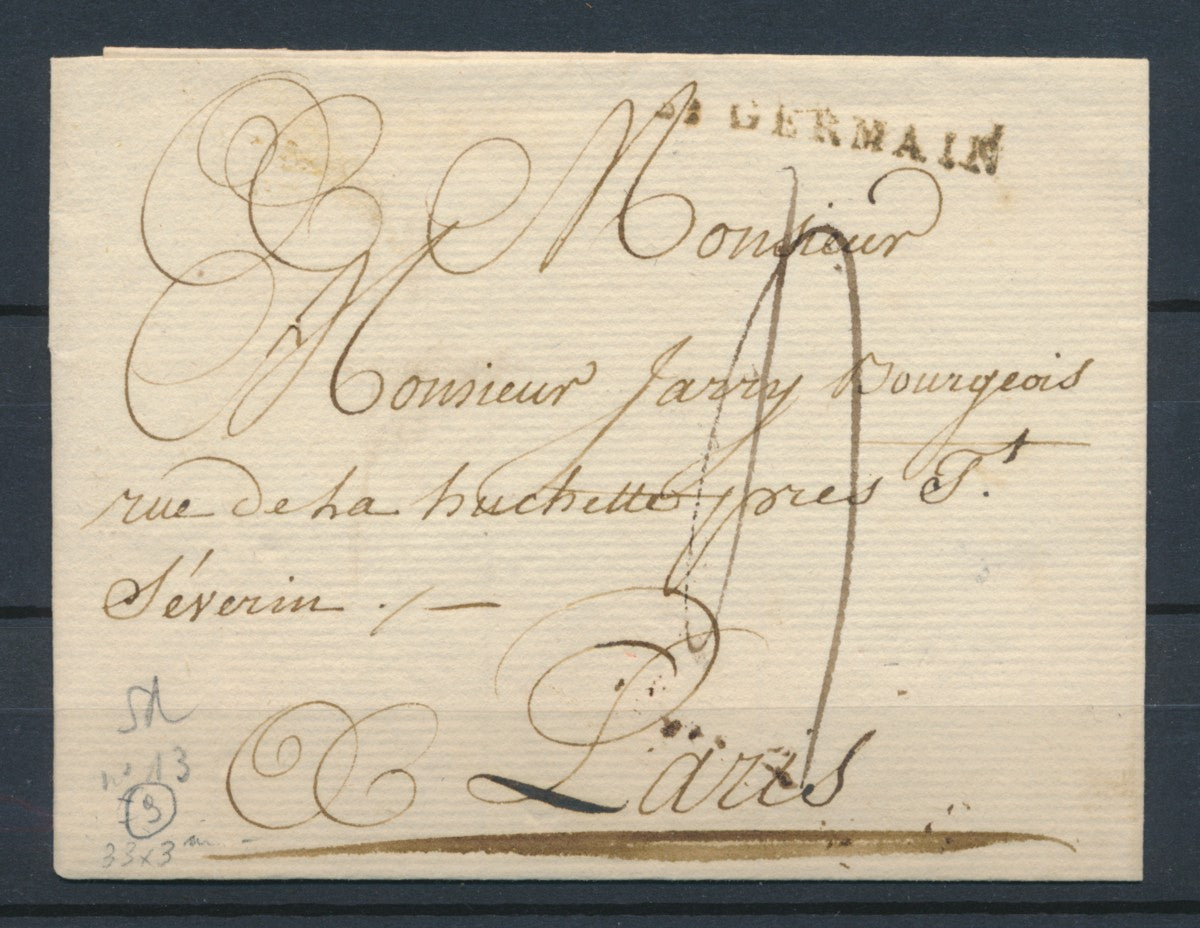 St GERMAIN
Monsieur
Monsieur Jarry Bourgeois
rue de la huchette près St.
Séverin . / —
Paris
no 13
3
33x3